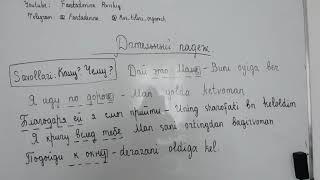 Youtube: Fantadmira Ravshiq
Telegram @ Fantadmira @ Rus_tilini_organish
Дательный падеж
Savollari: Кому? Чему? Дай это Маше - Buni oyiga ber
Я иду по дороге - Man yolda ketvoman
Благодаря ей я смог прийти - Uning sharofati bn keloldim
Я кричу вслед тебе. Man sani ortingdan baqirvoman
Подойди к окну - derazani oldiga kel.